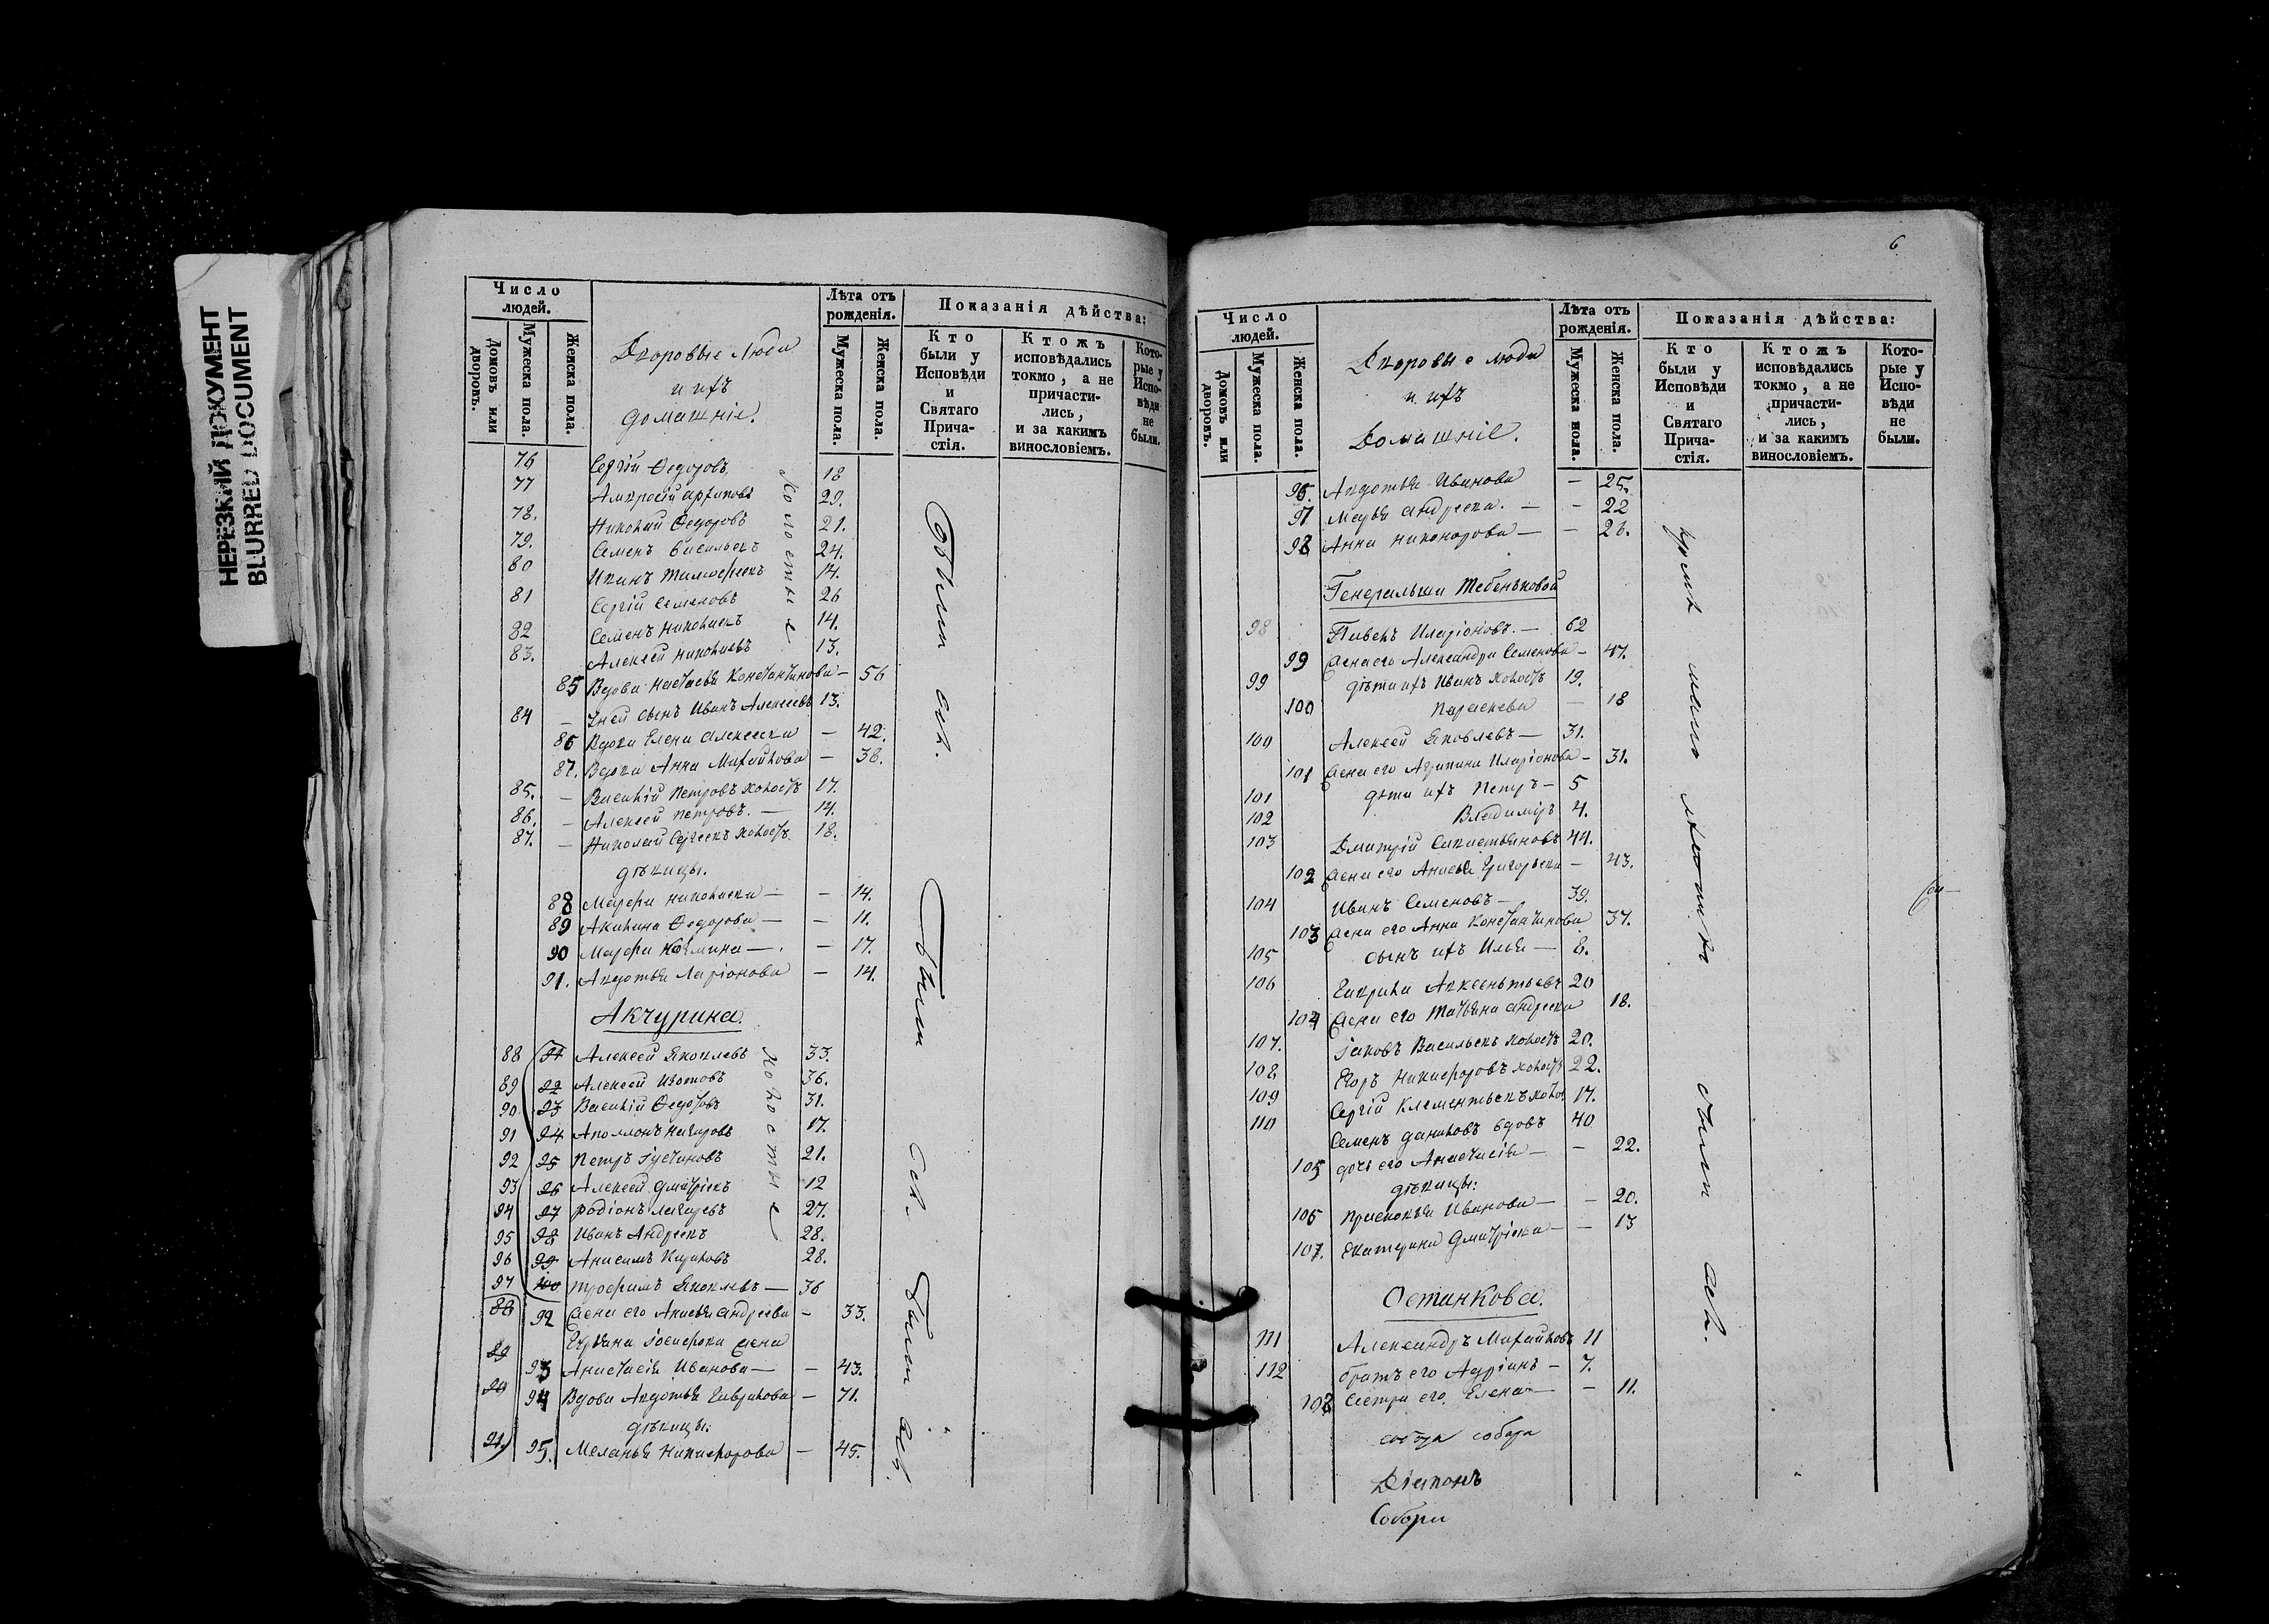 НЕРЕЗКИЙ ДОКУМЕНТ
BLURRED DOCUMENT
Число людей.
Домовъ или дворовъ.
Мужеска пола.
Женска пола.
Дворовые люди
и ихъ
домашніе.
Лѣта отъ рожденія.
Мужеска пола.
Женска пола.
Показанія дѣйства:
Кто были у Исповѣди и Святаго Причастія.
Ктожъ исповѣдались токмо, а не причастились, и за какимъ винословіемъ.
Которые у Исповѣди не были.
76 Сергій Ѳедоровъ 18
77 Амвросій Архиповъ 29.
78. Николай Ѳедоровъ 21.
79. Семенъ Васильевъ 24.
80 Иванъ Тимофеевъ 14.
81 Сергій Семеновъ 26
82 Семенъ Николаевъ 14.
83. Алексѣй Николаевъ 13.
холостые
85 Вдова Настасья Константинова — 56
84 — У ней сынъ Иванъ Алексеевъ 13.
86 Вдова Елена Алексеева — 42.
87. Вдова Анна Михайлова — 38.
85. — Василій Петровъ холостъ 17.
86. — Алексей Петровъ. — 14.
87. — Николай Сергеевъ холостъ 18.
дѣвицы.
88 Марфа Николаева — — 14.
89 Акилина Ѳедорова — — 11.
90 Марфа Козмина — — 17.
91. Авдотья Ларіонова — 14.
Были
Акчурина.
88 21 Алексей Яковлевъ 33.
89 22 Алексей Изотовъ 36.
90 23 Василій Ѳедотовъ 31.
91 24 Аполлонъ Назаровъ 17.
92 25 Петръ Іустиновъ 21.
93 26 Алексей Дмитріевъ 12
94 27 Родіонъ Лазаревъ 27.
95 28 Иванъ Андреевъ 28.
96 29 Анисимъ Кириловъ 28.
холостые
97 Трофимъ Яковлевъ — 36
88 92 Жена его Анисья Андреева — 33.
Іосифова жена
89 93 Анастасія Иванова — — 43.
94 Вдова Авдотья Гаврилова — 71.
дѣвицы:
91 95. Меланья Никифорова — 45.
Были
Были
6
Число людей.
Домовъ или дворовъ.
Мужеска пола.
Женска пола.
Дворовые люди
и ихъ
Домашніе.
Лѣта отъ рожденія.
Мужеска пола.
Женска пола.
Показанія дѣйства:
Кто были у Исповѣди и Святаго Причастія.
Ктожъ исповѣдались токмо, а не причастились, и за какимъ винословіемъ.
Которые у Исповѣди не были.
96. Авдотья Иванова — 25.
97 Марья Андреева. — — 22
98 Анна Никонорова — — 26.
Генеральши Тебеньковой
98 Павелъ Иларіоновъ. — 62
99 Жена его Александра Семенова — 47.
99 дѣти ихъ Иванъ холостъ 19.
100 Параскева — 18
100 Алексей Яковлевъ — 31.
101 Жена его Агрипина Иларіонова — 31.
101 дѣти ихъ Петръ — 5
102 Владиміръ 4.
103 Дмитрій Савастьяновъ 44.
102 Жена его Анисья Григорьева — 43.
104 Иванъ Семеновъ — 39.
103 Жена его Анна Константинова 37.
105 сынъ ихъ Илья — 8.
106 Гаврила Авксентьевъ 20
104 Жена его Татьяна Андреева 18.
107. Іаковъ Васильевъ холостъ 20.
108 Егоръ Никифоровъ холостъ 22.
109 Сергій Клементьевъ холос 17.
110 Семенъ Даниловъ вдовъ 40
105 дочь его Анастасія — — 22.
дѣвицы:
106 Прасковья Иванова — — 20.
107. Екатерина Дмитріева — — 13
кромѣ малолѣтнихъ были
Остинкова.
111 Александръ Михайловъ 11
112 братъ его Адріанъ — 7.
108 Сестра его Елена — — 11.
собора
Діаконъ